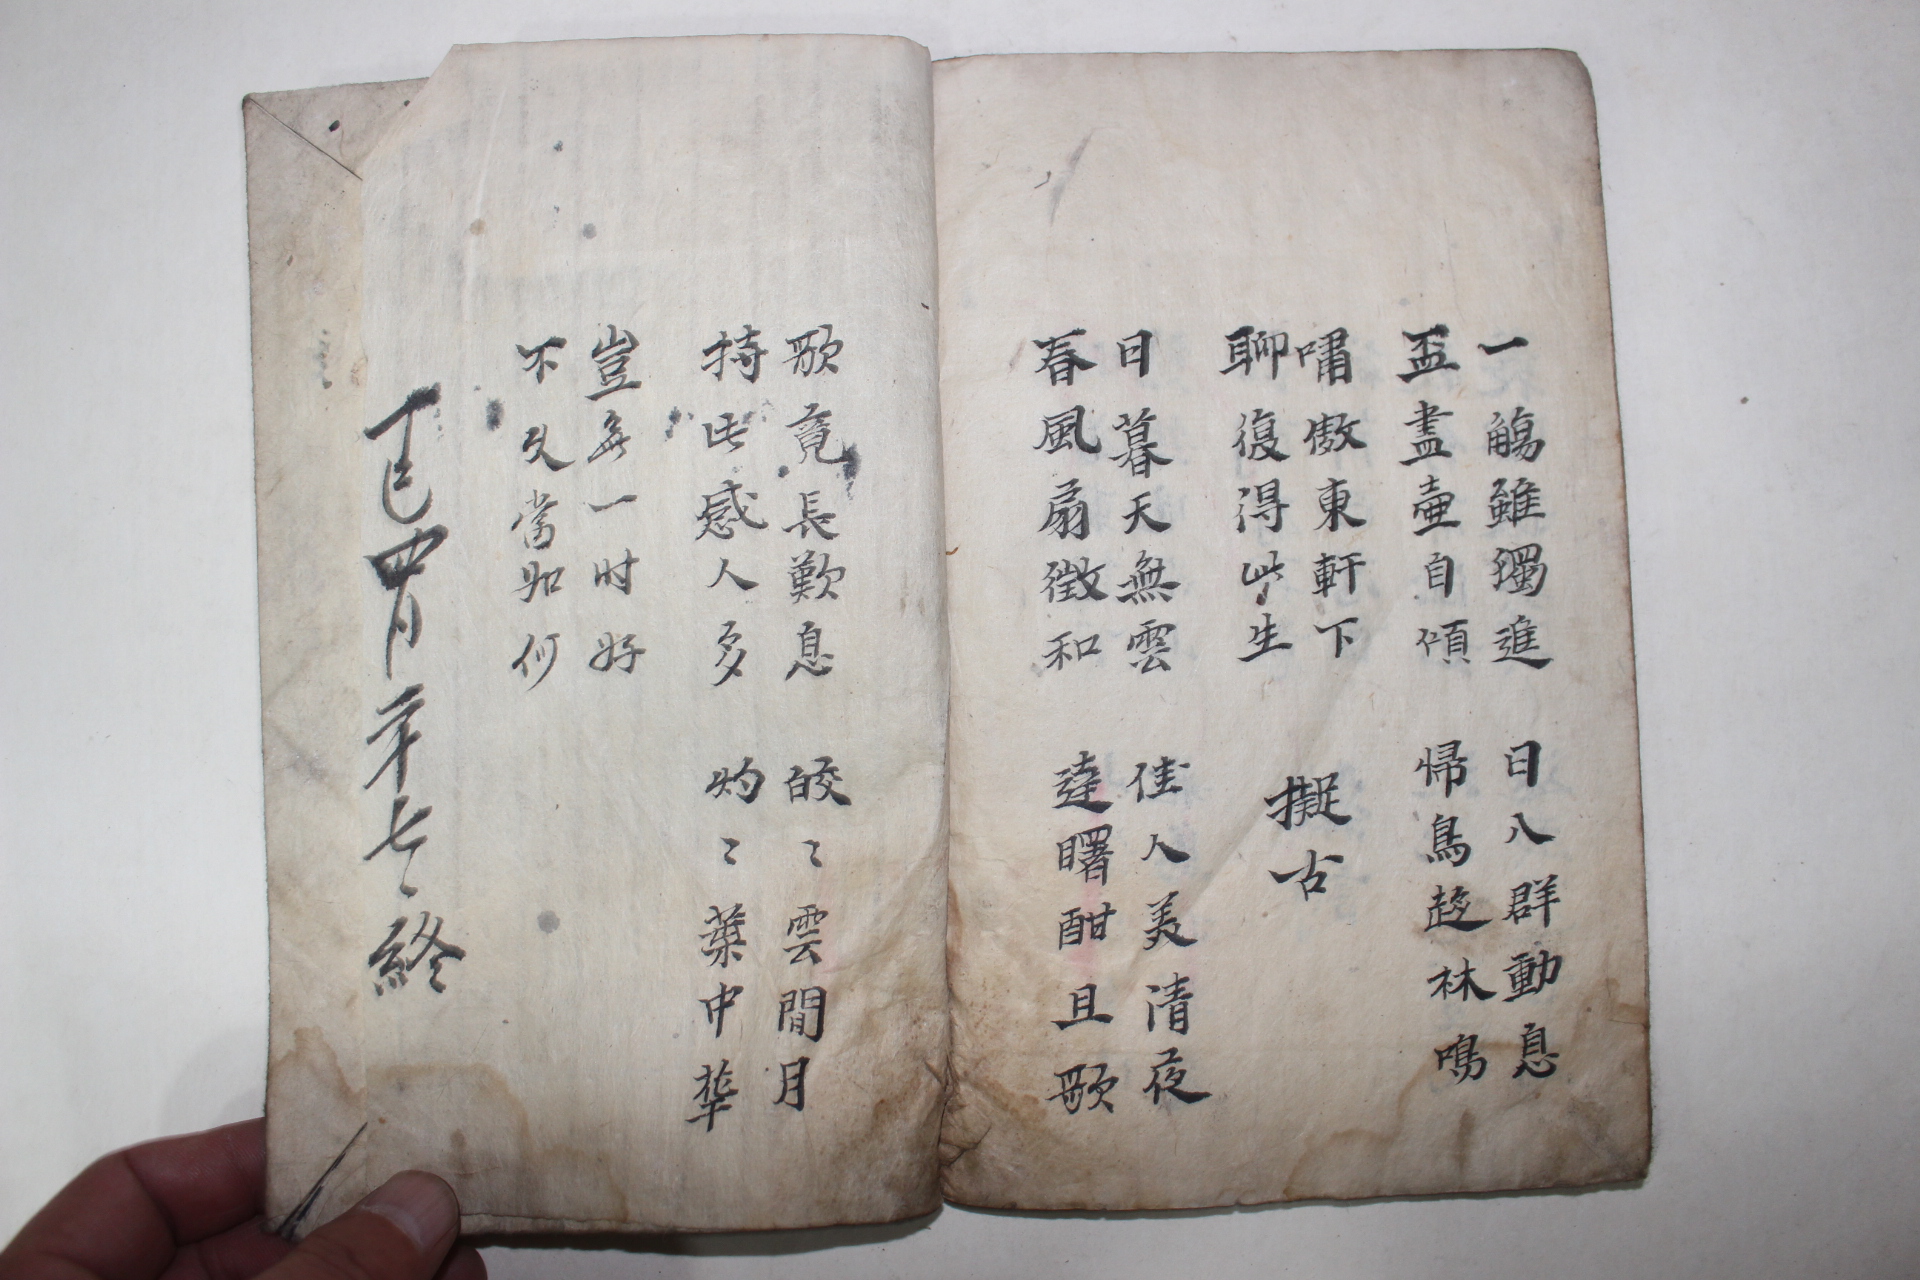 一觴雖獨進
盃盡壷自傾
日入群動息
帰鳥趍林鳴
嘯傲東軒下
聊復得此生
擬古
日暮天無雲
春風扇微和
佳人美清夜
達曙酣且歌
歌竟長歎息
持此感人多
皎〻雲間月
灼〻葉中華
豈無一时好
不久當如何
丁巳四月二十七日終